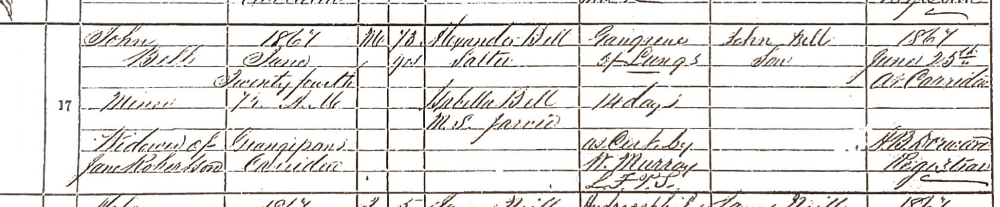 17
John
Bell
Miner
Widower of
Jane Robertson
1867
June
Twenty fourth
7h. A.M.
Grangepans
Carriden
M.
73
yrs
Alexander Bell
Salter
Isabella Bell
M.S. Jarvie
Gangrene
of Lungs
14 days
as Cert by
W. Murray
John Bell
Son
1867
June 25th
At Carriden
Registrar
1867